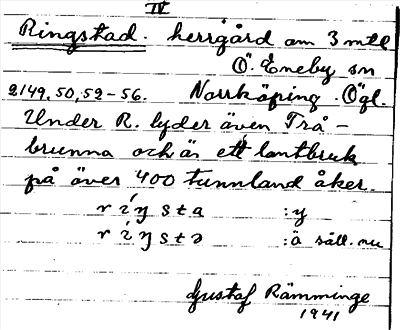 IV
Ringstad. herrgård om 3 mtl
Ö. Eneby sn
2/49, 50, 52-56. Norrköping. Ögl.
Under R. lyder även Trå-
brunna och är ett lantbruk
på över 400 tunnland åker.
r í ŋ s t a :y
r í ŋ s t ə :ä säll. nu
Gustaf Rämminge
1941